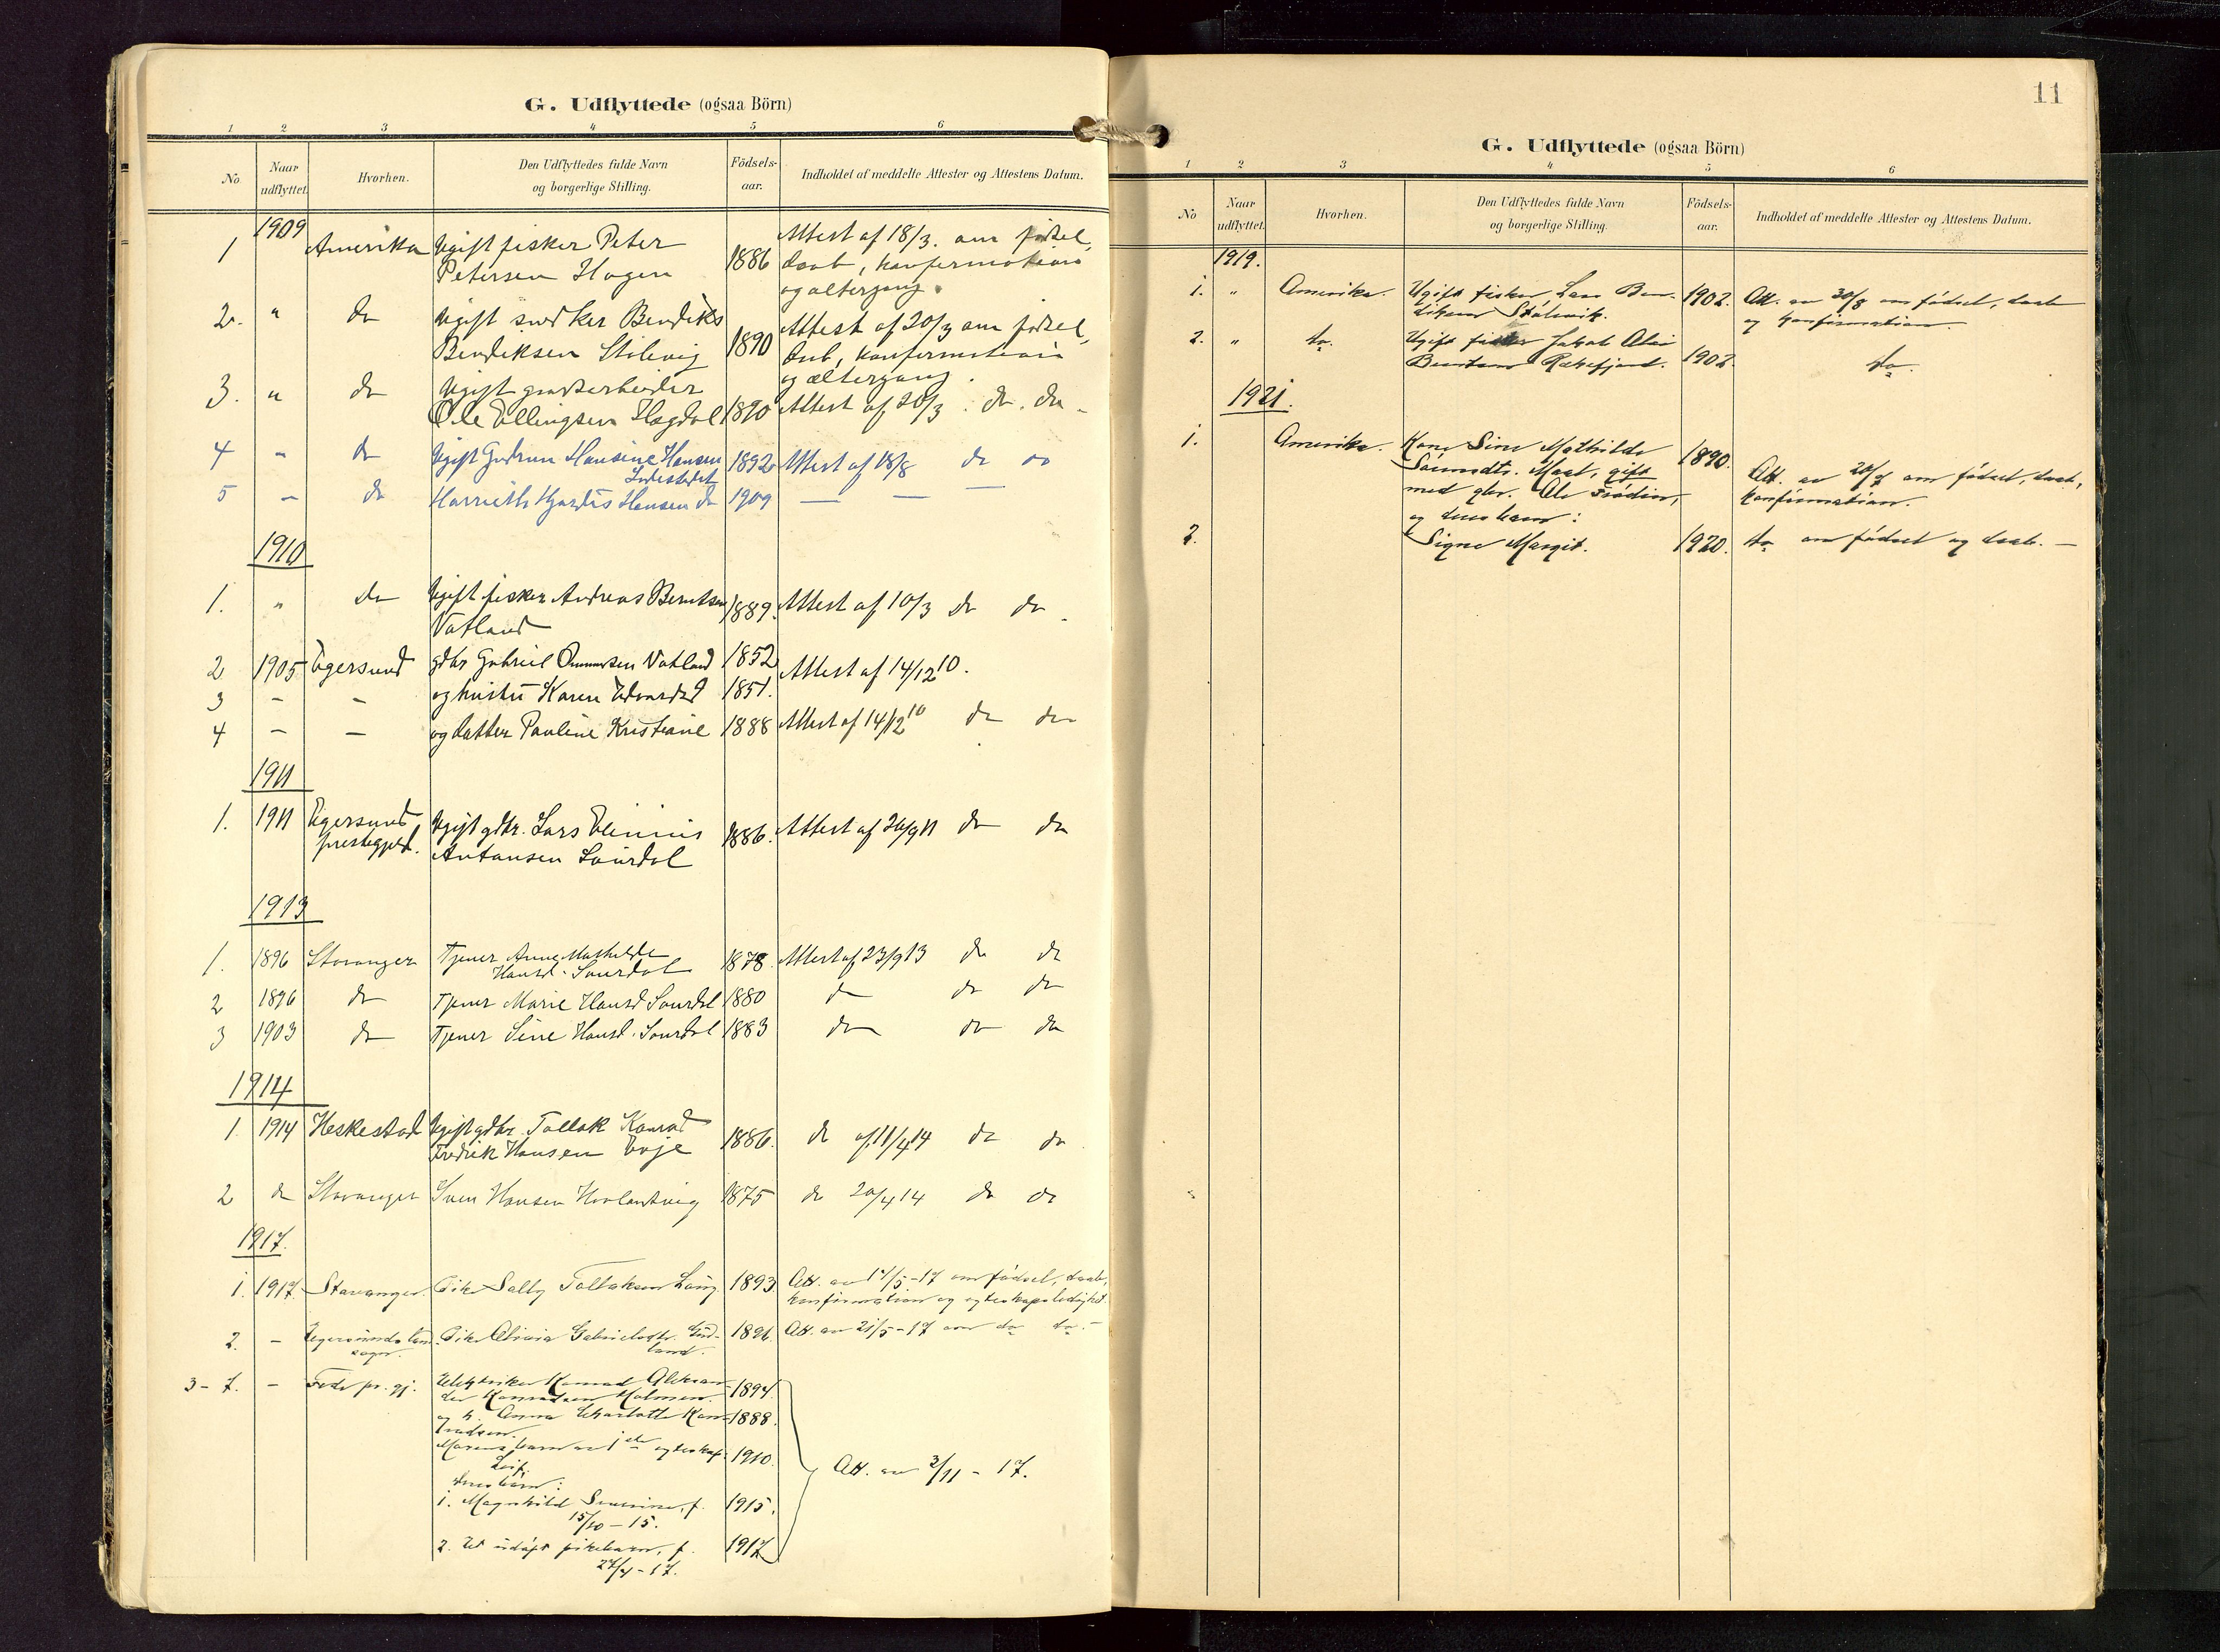 G. Udflyttede (ogsaa Börn)
1 2 3 4 5 6
No. Naar udflyttet. Hvorhen. Den Udflyttedes fulde Navn og borgerlige Stilling. Födsels-aar. Indholdet af meddelte Attester og Attestens Datum.
1909
1 Amerika Ugift fisker Peter Attest af 18/3. om födsel,
Petersen Hagen 1886 daab, konfirmation
og altergang.
2. " do Ugift snedker Bendiks Attest af 20/3 om födsel,
Bendiksen Stölevig 1890 daab, konfirmation
og altergang.
3. " do Ugift gaardarbeider
Ole Ellingsen Hogdal 1890 Attest af 20/3. do. do -
4 " do Ugift Gudrun Hansine Hansen 1892 Attest af 18/8 do do
5 - do Harrieth Hjørdis Hansen do 1909 — — —
1910
1. " do Ugift fisker Andreas Berntsen 1889. Attest af 10/3 do do -
Vatland
2 1905 Egersund gdbr Gabriel Omundsen Vatland 1852 Attest af 14/12 10.
3 - - og hustru Karen Edvardsd 1851.
4 - - og datter Pauline Kristiane 1888 Attest af 14/12 10 do do
1911
1. 1911 Egersund Ugift gdbr. Lars Elenius 1886. Attest af 26/9 11 do do
prestegjeld. Antonsen Saurdal
1913
1. 1896 Stavanger Tjener Anne Mathilde
Hansd. Saurdal 1878. Attest af 23/9 13 do do
2 1896 do Tjener Marie Hansd Saurdal 1880 do do do
3 1903 do Tjener Sine Hansd. Saurdal 1883 do do do
1914
1. 1914 Heskestad Ugift gdbr. Tollak Konrad
Fredrik Hansen Eoje 1886. do af 11/4 14 do do
2 do Stavanger Sven Hansen Hovlandsvig 1875 do 20/4 14 do do
1917.
1. 1917. Stavanger. Pike Sally Tollaksen Löng 1893 Att. av 14/5-17 om födsel, daab,
konfirmation og egteskapsledighet.
2. - Egersunds land- Pike Olivia Gabrielsdtr. Eid- 1896. Att. av 21/5-17 om do do. -
sogn. land.
3-7. - Feda pr. gj. Elektriker Konrad Aleksan- 1894.
der Konradsen Holmen.
og h. Anna Charlotte Kon- 1888.
radsen.
barn av 1ste egteskap: 1910.
Leif.
deres barn:
1. Magnhild Severine, f. 1915.
15/10-15.
2. Et udøpt pikebarn, f. 1917
27/4-17.
Att. av 3/11 - 17.
11
G. Udflyttede (ogsaa Börn)
1 2 3 4 5 6
No Naar udflyttet. Hvorhen. Den Udflyttedes fulde Navn og borgerlige Stilling. Födsels-aar. Indholdet af meddelte Attester og Attestens Datum.
1919.
1. " Amerika. Ugift fisker Lars Ben- 1902. Att. av 30/8 om födsel, daab
diksen Stölevik. og konfirmation.
2. " do. Ugift fisker Jakob Olai
Berntsen Rekefjord. 1902. do.
1921.
1. Amerika. Kone Sine Mathilde 1890.
Sömmedtr. Moal, gift Att. av 20/9 om födsel, daab,
med gbr. Ole konfirmation.
og deres barn:
2. Signe Margit. 1920. do om födsel og daab. —